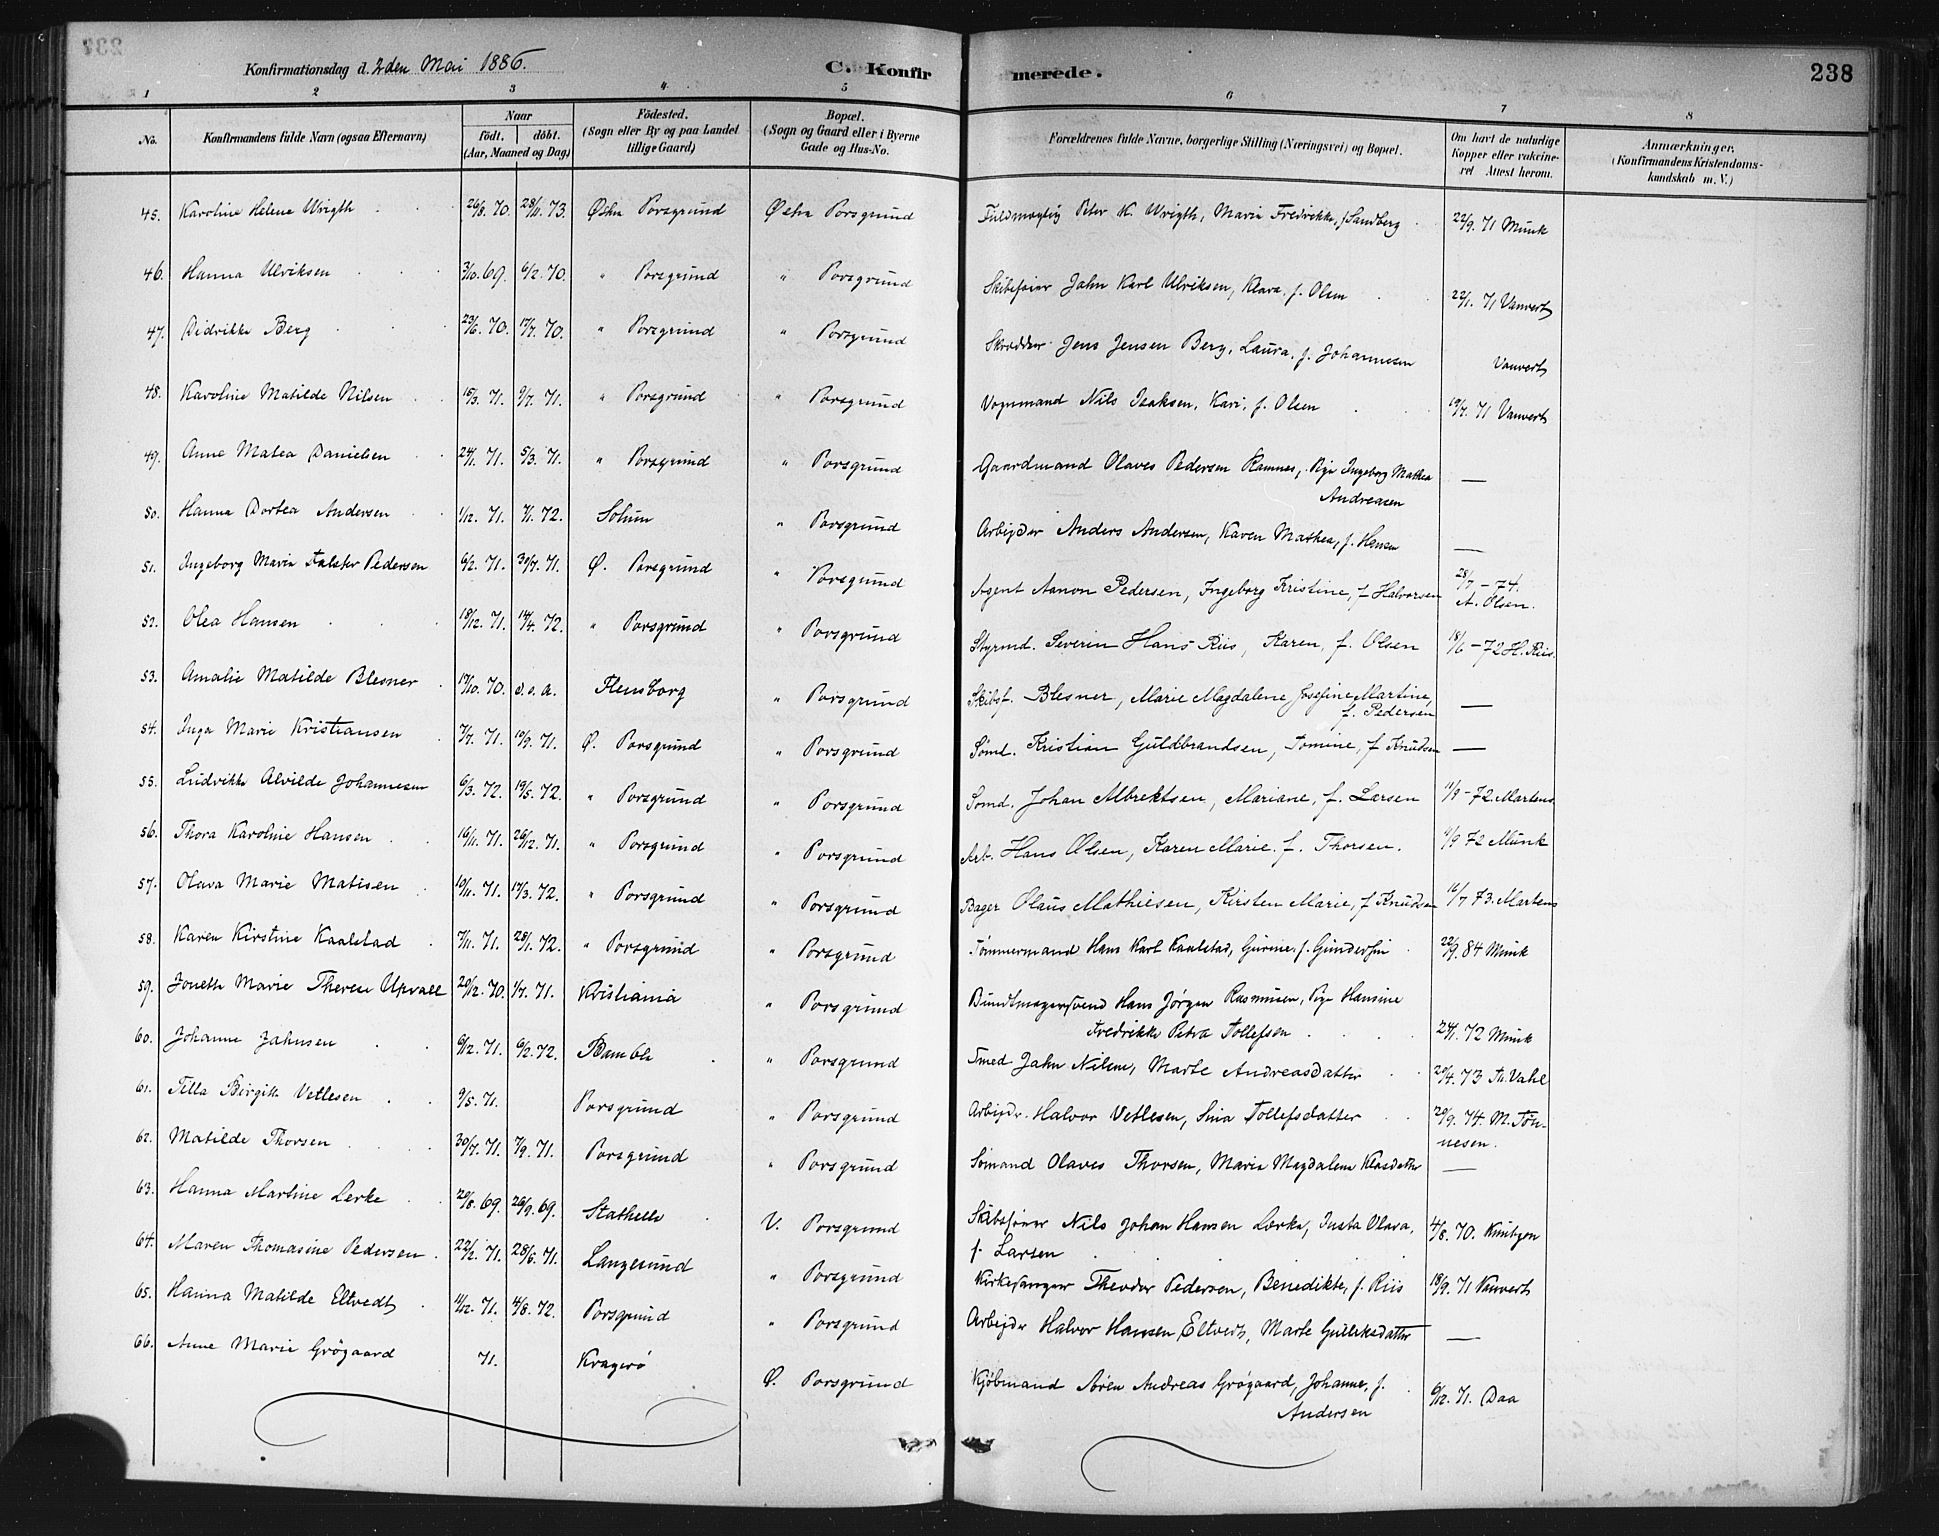 Konfirmationsdag d. 2den Mai 1886. C. Konfirmerede. 238
1 2 3 4 5 6 7 8
No. | Konfirmandens fulde Navn (ogsaa Efternavn) | Naar født. | døbt. (Aar, Maaned og Dag) | Fødested. (Sogn eller By og paa Landet tillige Gaard) | Bopæl. (Sogn og Gaard eller i Byerne Gade og Hus-No. | Forældrenes fulde Navne, borgerlige Stilling (Næringsvei) og Bopæl. | Om havt de naturlige Kopper eller vakcineret Attest herom. | Anmærkninger. (Konfirmandens Kristendomskundskab m. V.)
45. Karoline Helene Wrigth 26/8. 70. 28/11. 73. Østre Porsgrund Østre Porsgrund Fuldmægtig Peter K. Wrigth, Marie Fredrikke, f. Sandberg 22/9. 71 Munk
46. Hanna Ulriksen 3/10. 69. 6/2. 70. " Porsgrund " Porsgrund Skibsfører John Karl Ulriksen, Klara, f. Olsen 22/1. 71 Vauvert
47. Didrikke Berg 23/6. 70. 17/7. 70. " Porsgrund " Porsgrund Skrædder Jens Jensen Berg, Laura, f. Johannesen Vauvert
48. Karoline Matilde Nilsen 15/3. 71. 9/7. 71. " Porsgrund " Porsgrund Vognmand Nils Isaksen, Kari, f. Olsen 19/7. 71 Vauvert
49. Anne Matea Danielsen 24/1. 71. 5/3. 71. " Porsgrund " Porsgrund Gaardmand Olaves Pedersen Ramnes, Pige Ingeborg Mathea Andreasen —
50. Hanna Dortea Andersen 1/12. 71. 7/1. 72. Solum " Porsgrund Arbejder Anders Andersen, Karen Mathea, f. Hansen —
51. Ingeborg Marie Falster Pedersen 6/2. 71. 30/7. 71. Ø. Porsgrund " Porsgrund Agent Aanon Pedersen, Ingeborg Kristine, f. Halvorsen 28/7 - 74. A. Olsen.
52. Olea Hansen 18/12. 71. 14/4. 72. " Porsgrund " Porsgrund Styrmd. Severin Hans Riis, Karen, f. Olsen 18/6 - 72 H. Riis.
53. Amalie Matilde Blesner 17/10. 70. d. o. a. Flensborg " Porsgrund Skibsf. Blesner, Marie Magdalene Josefine Martine, f. Pedersen —
54. Inga Marie Kristiansen 7/7. 71. 10/9. 71. Ø. Porsgrund " Porsgrund Sømd. Kristian Guldbrandsen, Tomine, f. Knudsen —
55. Ludvikke Alvilde Johannesen 6/3. 72. 19/5. 72. " Porsgrund " Porsgrund Sømd. Johan Albrektsen, Mariane, f. Larsen 11/9 - 72. Martens
56. Thora Karoline Hansen 16/11. 71. 26/12. 71. " Porsgrund " Porsgrund Arb. Hans Olsen, Karen Marie, f. Thorsen. 11/9 72 Munk
57. Olava Marie Matisen 10/11. 71. 17/3. 72. " Porsgrund " Porsgrund Bager Olaus Mathiesen, Kirsten Marie, f. Knudsen 16/7 73. Martens
58. Karen Kirstine Kaalstad 7/11. 71. 28/1. 72. " Porsgrund " Porsgrund Tømmermand Hans Karl Kaalstad, Gurine, f. Gundersen 22/9. 84 Munk
59. Jonette Marie Therese Upvall 20/12. 70. 1/7. 71. Kristiania " Porsgrund Bundtmagersvend Hans Jørgen Rasmusen, Pige Hansine Fredrikke Petra Tollefsen 24/1. 72 Munk
60. Johanne Jahnsen 6/12. 71. 6/2. 72. Bamble " Porsgrund Smed Jahn Nilsen, Marte Andreasdatter 20/4. 73 Th. Vahl
61. Tilla Birgitte Vetlesen 9/5. 71. Porsgrund " Porsgrund Arbejder Halvor Vetlesen, Sina Tollefsdatter 20/9. 74. M. Tönnesen.
62. Matilde Thorsen 30/7. 71. 7/9. 71. Porsgrund " Porsgrund Sømand Olaves Thorsen, Maria Magdalena Klasdatter —
63. Hanna Martine Lerke 20/8. 69. 26/9. 69. Stathelle V. Porsgrund Skibsfører Nils Johan Hansen Lerke, Justa Olava, f. Larsen 4/8. 70.
64. Maren Thomasine Pedersen 22/2. 71. 28/6. 71. Langesund " Porsgrund Kirkesanger Theodor Pedersen, Benedikte, f. Riis 18/9. 71 Vauvert
65. Hanna Matilde Eltvedt 11/12. 71. 4/8. 72. Porsgrund " Porsgrund Arbejder Halvor Hansen Eltvedt, Marte Gulleksdatter —
66. Anne Marie Grögaard 71. Kragerø Ø. Porsgrund Kjøbmand Søren Andreas Grögaard, Johanne, f. Andersen 6/12. 71. Daa